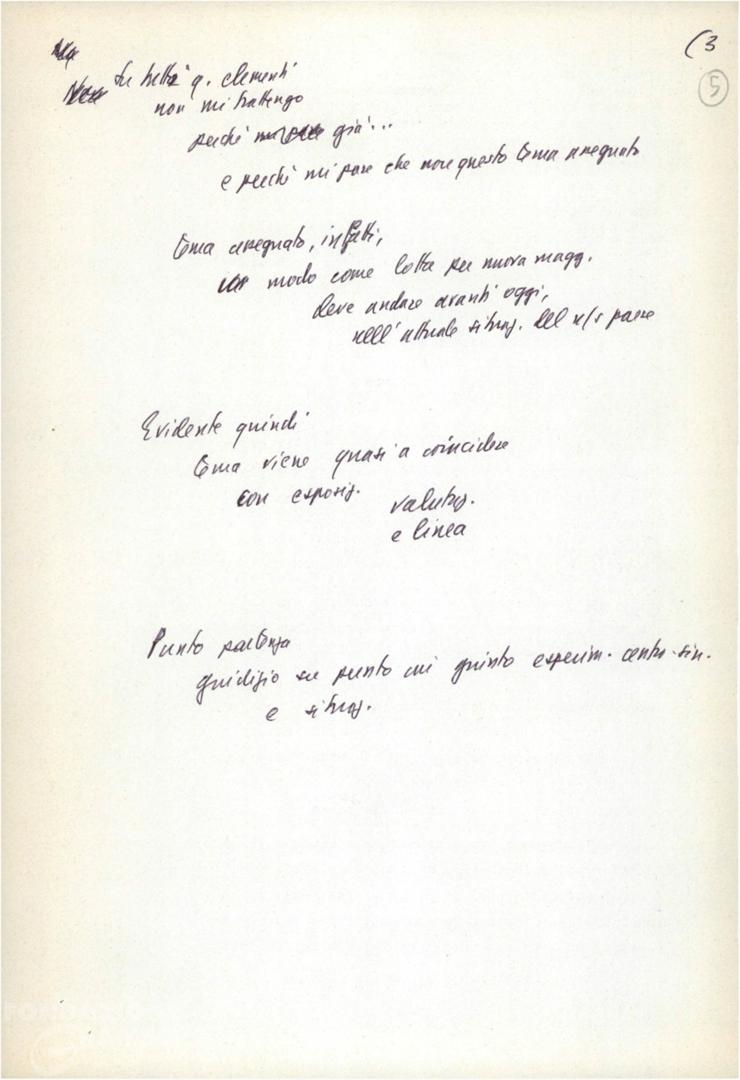 (3
5
Su tutti q. elementi
non mi trattengo
perché già...
e perché mi pare che non questo tema assegnato
Tema assegnato, infatti,
modo come lotta per nuova magg.
deve andare avanti oggi,
nell'attuale situaz. del n/s paese
Evidente quindi
tema viene quasi a coincidere
con esposiz. valutaz.
e linea
Punto partenza
giudizio su punto cui giunto esperim. centro-sin.
e situaz.